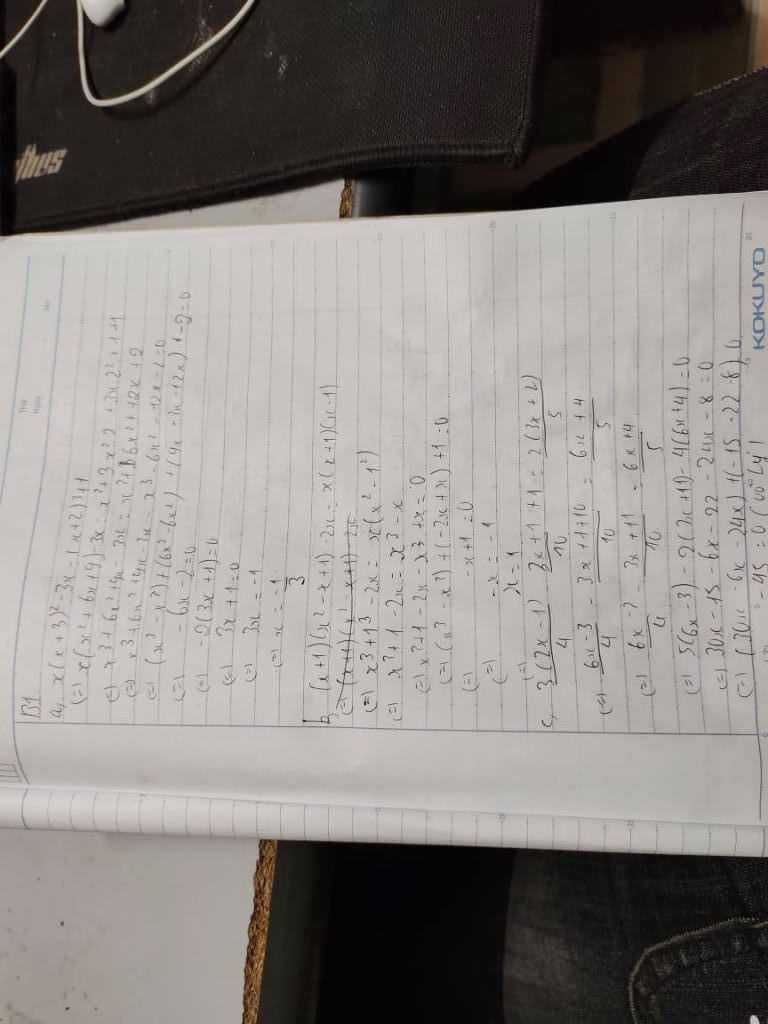 thus
Thứ
Ngày
No.
B1:
a, x(x+3)² - 3x = (x+2)3+1
(=) x(x²+6x+9)-3x = x³+3.x².2+3x.2²+1+1
(=) x³+6x²+9x-3x = x³+6x²+12x+2
(=) x³+6x²+9x-3x-x³-6x²-12x-2=0
(=) (x³-x³)+(6x²-6x²)+(9x-3x-12x)-2=0
(=) -6x-2=0
(=) -2(3x+1)=0
(=) 3x+1=0
(=) 3x=-1
(=) x=-1/3
b, (x+1)(x²-x+1)-2x = x(x+1)(x-1)
(=) (x+1)(x²-x+1)-2x
(=) x³+1³-2x = x(x²-1²)
(=) x³+1-2x = x³-x
(=) x³+1-2x-x³+x=0
(=) (x³-x³)+(-2x+x)+1=0
(=) -x+1=0
(=) -x=-1
(=) x=1
c, 3(2x-1)/4 - 3x+1/10 +1 = 2(3x+2)/5
(=) 6x-3/4 - 3x+1+10/10 = 6x+4/5
(=) 6x-3/4 - 3x+11/10 = 6x+4/5
(=) 5(6x-3)-2(3x+11)-4(6x+4)=0
(=) 30x-15-6x-22-24x-8=0
(=) (30x-6x-24x)+(-15-22-8)=0
-45=0 (vô lý)
KOKUYO